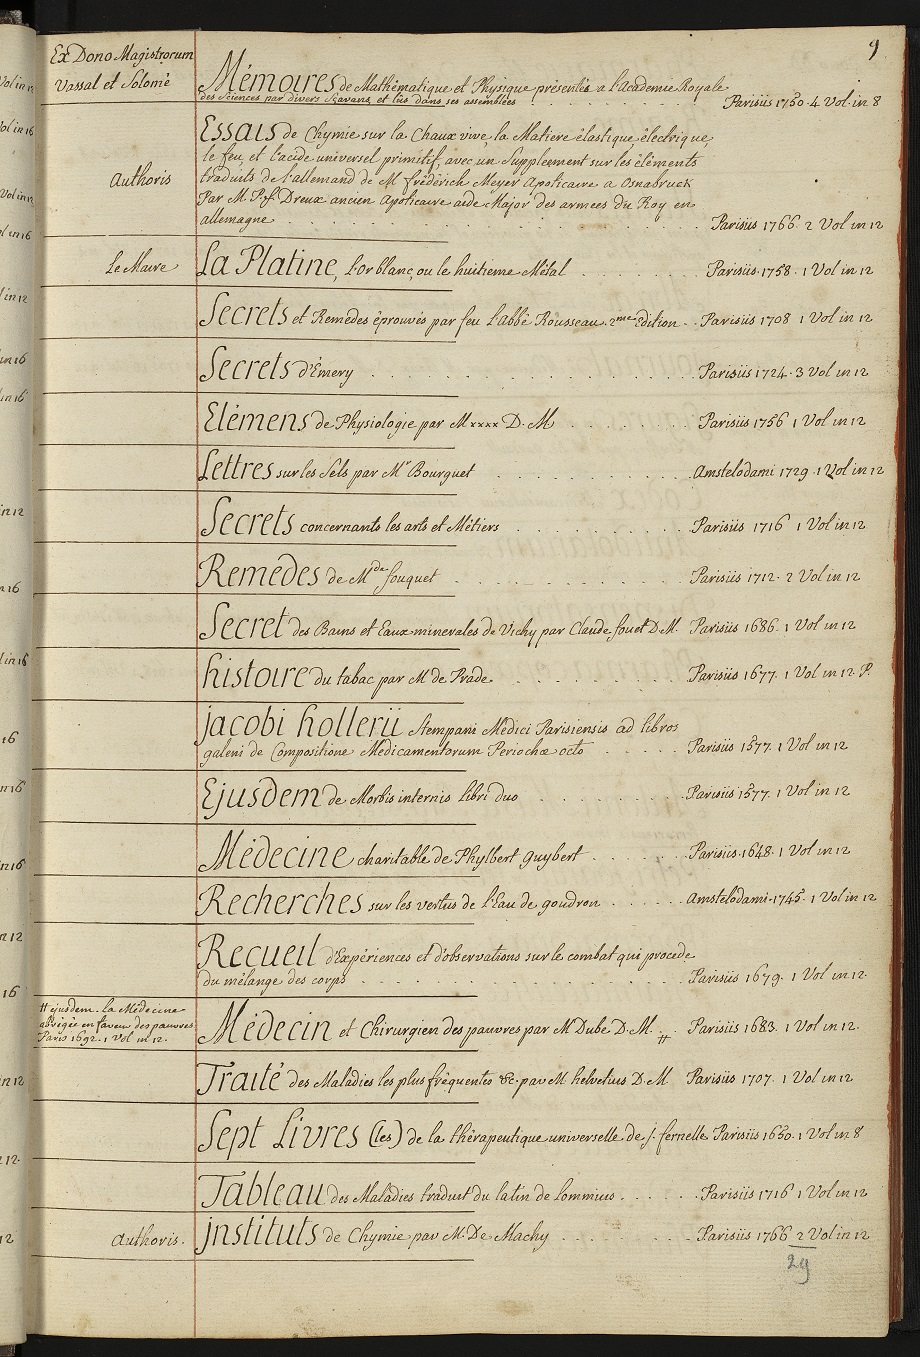 9
Ex Dono Magistrorum
Vassal et Solomé
Mémoires de Mathématique et Physique présentés a l'academie Royale
des Sciences par divers Sçavans, et lûs dans ses assemblées . . . . Parisiis 1750. 4 Vol. in 8
Essais de Chymie sur la Chaux vive, la Matiere élastique, électrique,
le feu, et l'acide universel primitif, avec un Supplement sur les éléments
Authoris
traduits de l'allemand de M. frédérich Meyer Apoticaire a Osnabruck
Par M. P. f. Dreux ancien Apoticaire aide Major des armées du Roy en
allemagne . . . . Parisiis 1766. 2 Vol in 12
Le Maire
La Platine, l'or blanc, ou le huitieme Métal . . . . Parisiis. 1758. 1 Vol in 12
Secrets et Remedes éprouvés par feu l'abbé Rousseau. 2me Edition . . Parisiis 1708 1 Vol in 12
Secrets d'Émery . . . . Parisiis 1724. 3 Vol in 12
Elémens de Physiologie par M xxxx D. M . . . . Parisiis 1756 1 Vol in 12
Lettres sur les Sels par Mr Bourguet . . . . Amstelodami 1729. 1 Vol in 12
Secrets concernants les arts et Métiers . . . . Parisiis 1716 1 Vol in 12
Remedes de Mde fouquet . . . . Parisiis 1712. 2 Vol in 12
Secret des Bains et Eaux minerales de Vichy par Claude fouet D. M. Parisiis 1686. 1 Vol in 12
histoire du tabac par M de Prade . . . . Parisiis 1677. 1 Vol in 12. P.
jacobi hollerii Stempani Médici Parisiensis ad libros
galeni de Compositione Médicamentorum Periochæ octo . . . . Parisiis 1577. 1 Vol in 12
Ejusdem de Morbis internis libri duo . . . . Parisiis 1577. 1 Vol in 12
Médecine charitable de Phylbert guybert . . . . Parisiis. 1648. 1 Vol in 12
Recherches sur les vertus de l'Eau de goudron . . . . Amstelodami. 1745. 1 Vol in 12
Recueil d'Expériences et d'observations sur le combat qui procede
du mélange des corps . . . . Parisiis 1679. 1 Vol in 12.
# ejusdem. la Médecine
abrégée en faveur des pauvres
Paris 1692. 1 Vol in 12.
Médecin et Chirurgien des pauvres par M Dubé D. M. # . Parisiis 1683. 1 Vol in 12.
Traité des Maladies les plus fréquentes &c. par M. helvetius D. M. Parisiis 1707. 1 Vol in 12
Sept Livres (les) de la thérapeutique universelle de j. fernelle Parisiis 1650. 1 Vol in 8
Tableau des Maladies traduit du latin de lommius . . . . Parisiis 1716 1 Vol in 12
Authoris.
jnstituts de Chymie par M. De Machy . . . . Parisiis 1766 2 Vol in 12
29